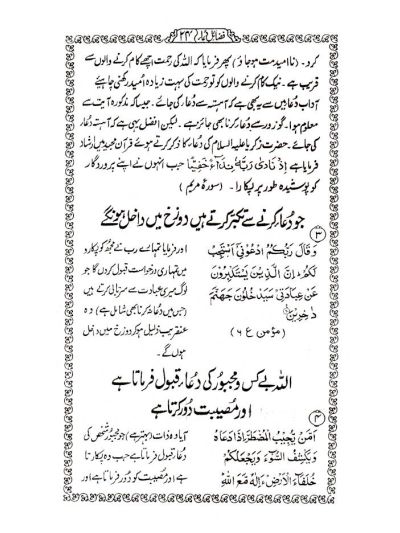 فضائل دُعاء ۲۴
کرو۔ (نااُمید مت ہوجاؤ) پھر فرمایا کہ اللہ کی رحمت اچھے کام کرنے والوں سے
قریب ہے۔ نیک کام کرنے والوں کو تو رحمت کی بہت زیادہ اُمید رکھنی چاہیے
آدابِ دُعا میں سے یہ بھی ہے کہ آہستہ سے دُعا کی جائے۔ جیسا کہ مذکورہ آیت سے
معلوم ہوا۔ گو زور سے دُعا کرنا بھی جائز ہے۔ لیکن افضل یہی ہے کہ آہستہ دُعا
کی جائے۔ حضرت زکریا علیہ السلام کی دُعا کا ذکر کرتے ہوئے قرآن مجید میں ارشاد
فرمایا ہے اِذْ نَادٰی رَبَّهٗ نِدَآءً خَفِیًّا جب انہوں نے اپنے پروردگار
کو پوشیدہ طور پر پکارا۔ (سورۂ مریم)
جو دُعا کرنے سے تکبر کرتے ہیں دوزخ میں داخل ہونگے
۳
وَقَالَ رَبُّكُمُ ادْعُوْنِیْٓ اَسْتَجِبْ
لَكُمْ اِنَّ الَّذِیْنَ یَسْتَكْبِرُوْنَ
عَنْ عِبَادَتِیْ سَیَدْخُلُوْنَ جَهَنَّمَ
دٰخِرِیْنَ
(مؤمن ع ۶)
اور فرمایا تمہارے رب نے مجھ کو پکارو
میں تمہاری درخواست قبول کروں گا جو
لوگ میری عبادت سے سرتابی کرتے ہیں
(جس میں دُعا کرنا بھی شامل ہے) وہ
عنقریب ذلیل ہو کر دوزخ میں داخل
ہوں گے۔
اللہ بے کس و مجبور کی دُعا قبول فرماتا ہے
اور مصیبت دُور کرتا ہے
۴
اَمَّنْ یُّجِیْبُ الْمُضْطَرَّ اِذَا دَعَاهُ
وَیَكْشِفُ السُّوْٓءَ وَیَجْعَلُكُمْ
خُلَفَآءَ الْاَرْضِ ءَاِلٰهٌ مَّعَ اللّٰهِ
آیا وہ ذات (بہتر ہے) جو مجبور شخص کی
دُعا قبول فرماتا ہے جب وہ پکارتا
ہے اور مصیبت کو دُور فرماتا ہے اور